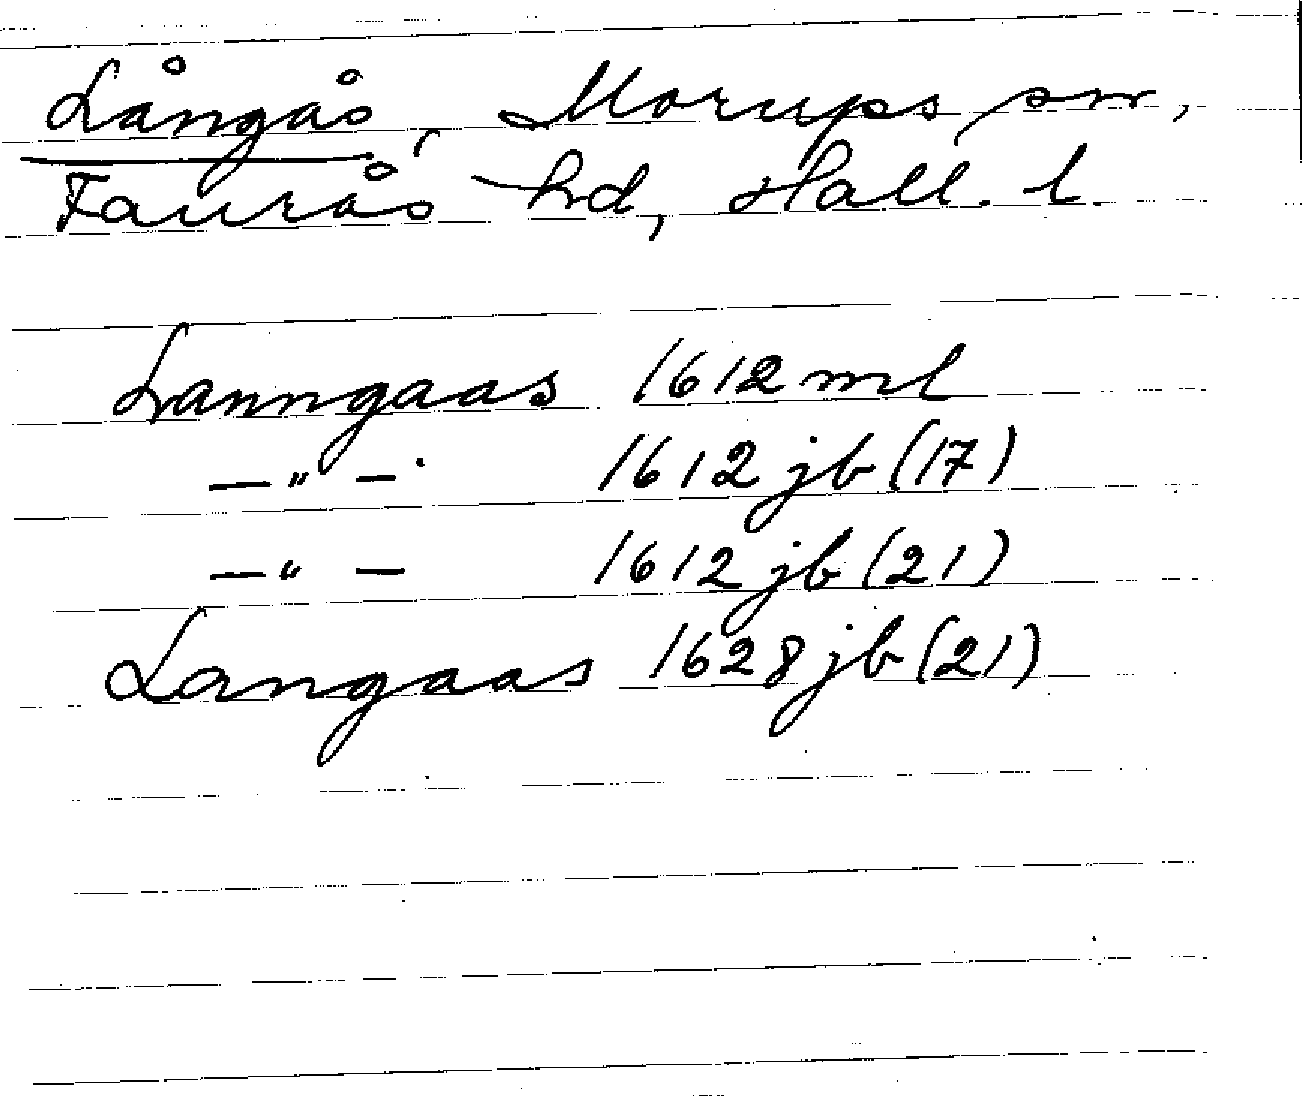 Långås, Morups sn,
Faurås hd, Hall. l.
Lanngaas 1612 ml
—"— 1612 jb (17)
—"— 1612 jb (21)
Langaas 1628 jb (21)